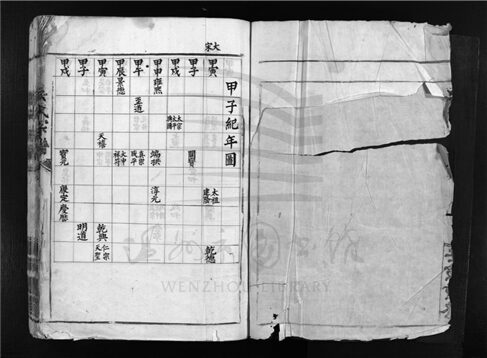 大宋
甲子紀年圖
甲寅 太祖建隆 乾德
甲子 開寶
甲戌 太宗太平興國
甲申 雍熙 端拱 淳化
甲午 至道 真宗咸平
甲辰 景德 大中祥符
甲寅 天禧 乾興 仁宗天聖
甲子 明道
甲戌 寶元 康定 慶曆
温州市图书馆
WENZHOU LIBRARY